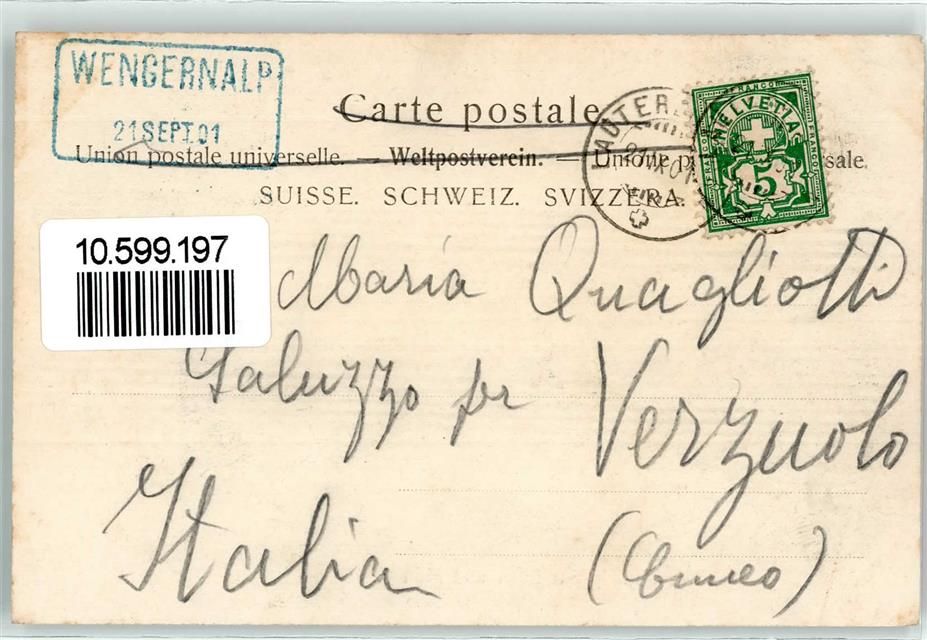 WENGERNALP
21 SEPT. 01
Carte postale
Union postale universelle. — Weltpostverein. — Unione postale
SUISSE. SCHWEIZ. SVIZZERA.
FRANCO
HELVETIA
FRANCO
FRANCO
5
LAUTER
IX.01
10.599.197
Maria Quagliotti
Saluzzo per Verzuolo
Italia (Cuneo)